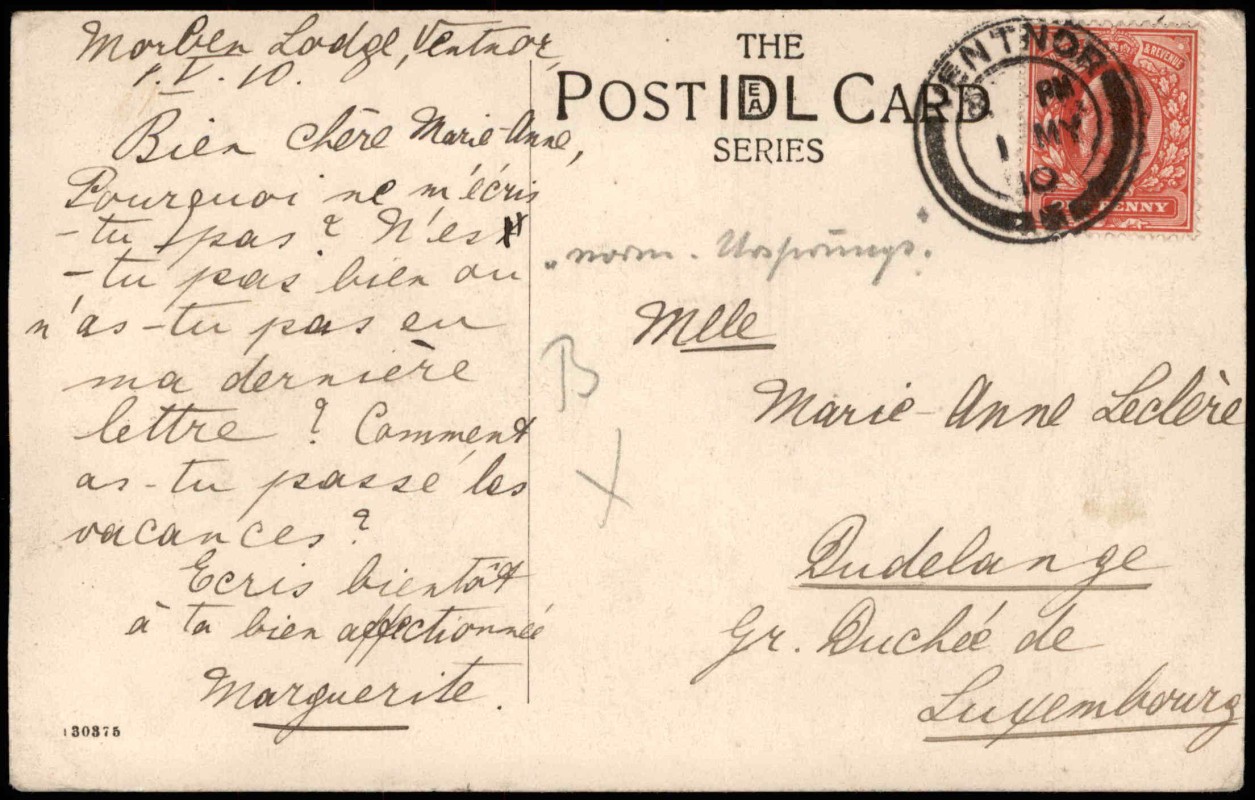 Morben Lodge, Ventnor,
1. V. 10.
Bien chère Marie-Anne,
Pourquoi ne m'écris
-tu pas? N'es
-tu pas bien ou
n'as-tu pas eu
ma dernière
lettre? Comment
as-tu passé les
vacances?
Ecris bientôt
à ta bien affectionnée
Marguerite.
130375
THE
POST IDEAL CARD
SERIES
VENTNOR
PM
1 MY
10
& REVENUE
PENNY
norm. Ursprungs.
B
X
Mlle
Marie-Anne Leclère
Dudelange
Gr. Duchée de
Luxembourg